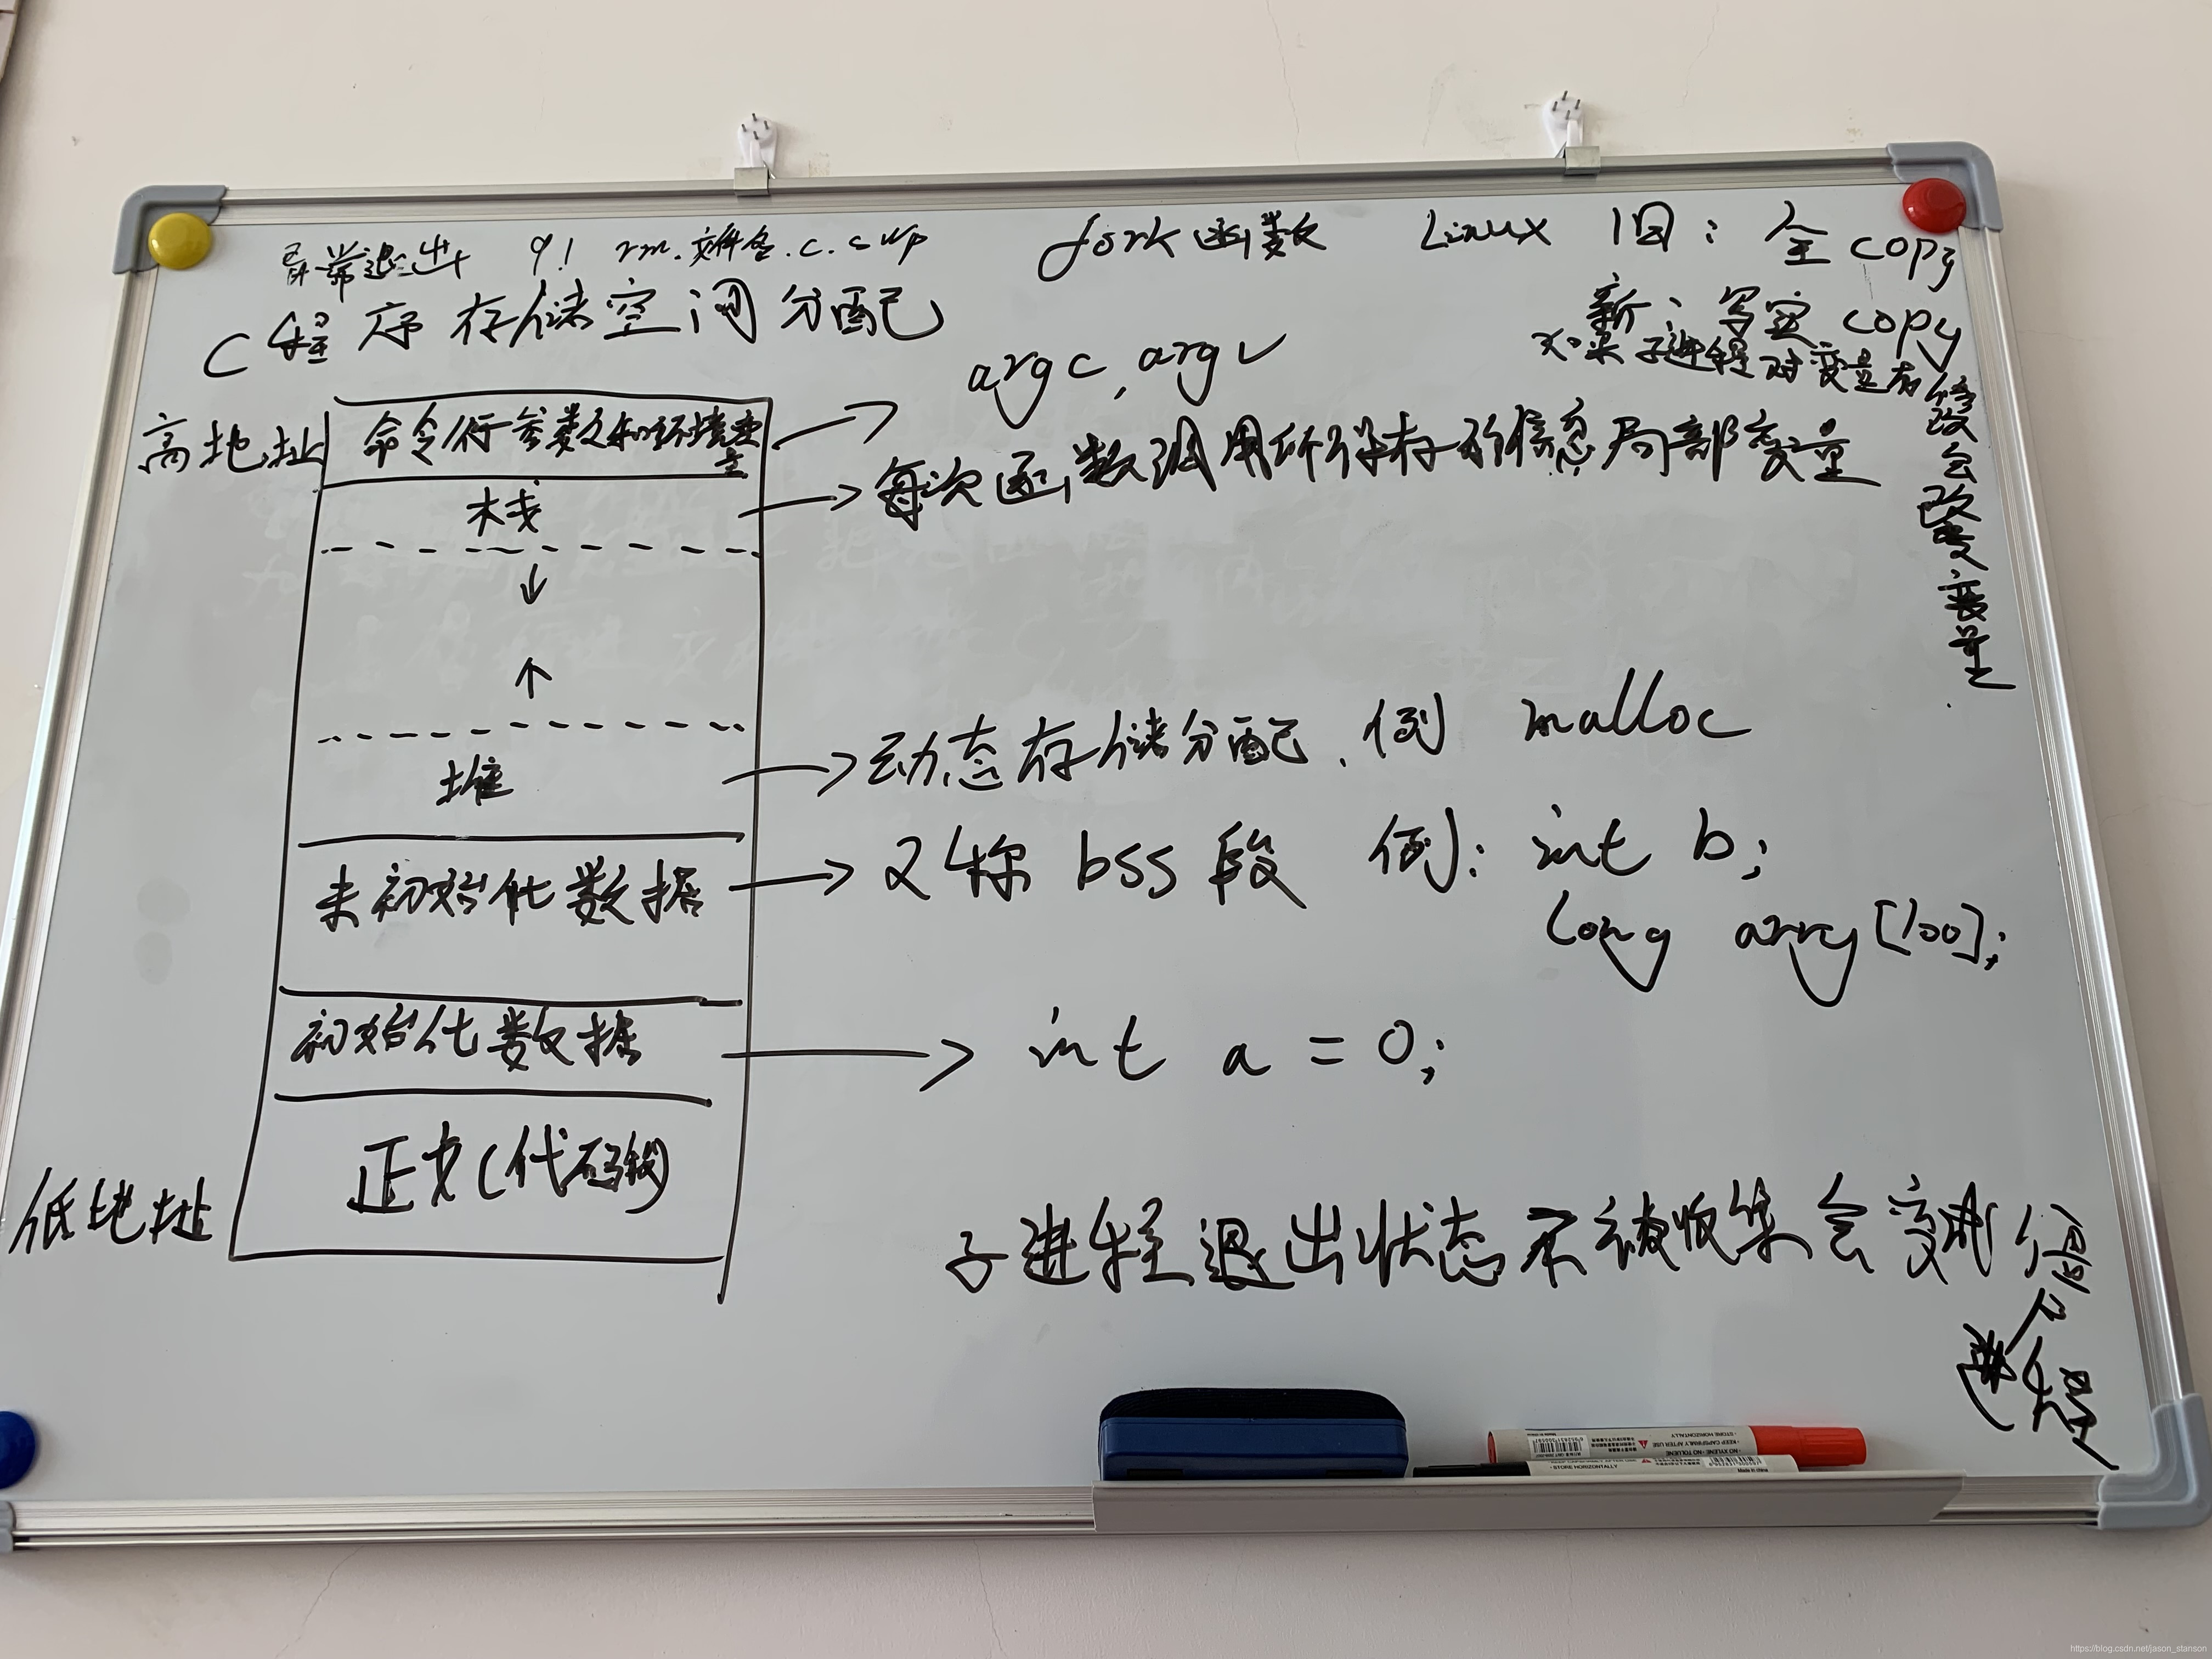 异常退出 q! rm .文件名.c.swp
fork函数 Linux 旧: 全copy
新: 写实copy
只要子进程对变量有修改会改变变量
C程序存储空间分配
argc, argv
高地址
命令行参数和环境变量
栈
每次函数调用所保存的信息局部变量
↓
↑
堆
动态存储分配. 例 malloc
未初始化数据
又称 bss 段 例: int b;
long arry[100];
初始化数据
int a = 0;
正文(代码段)
低地址
子进程退出状态不被收集会变成僵尸进程
STORE HORIZONTALLY
KEEP CAP FIRMLY AFTER USE
NO XYLENE · NO TOLUENE
STORE HORIZONTALLY
https://blog.csdn.net/jason_stanson